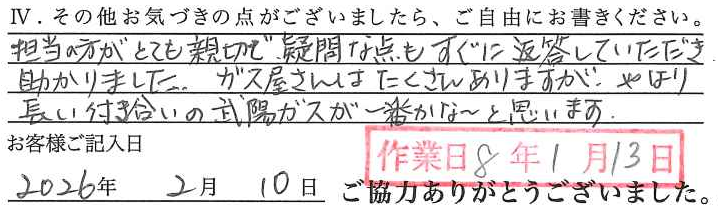 Ⅳ．その他お気づきの点がございましたら、ご自由にお書きください。
担当の方がとても親切で、疑問な点もすぐに返答していただき
助かりました。ガス屋さんはたくさんありますが、やはり
長い付き合いの武陽ガスが一番かな〜と思います。
お客様ご記入日
作業日8年1月13日
2026年 2月 10日 ご協力ありがとうございました。